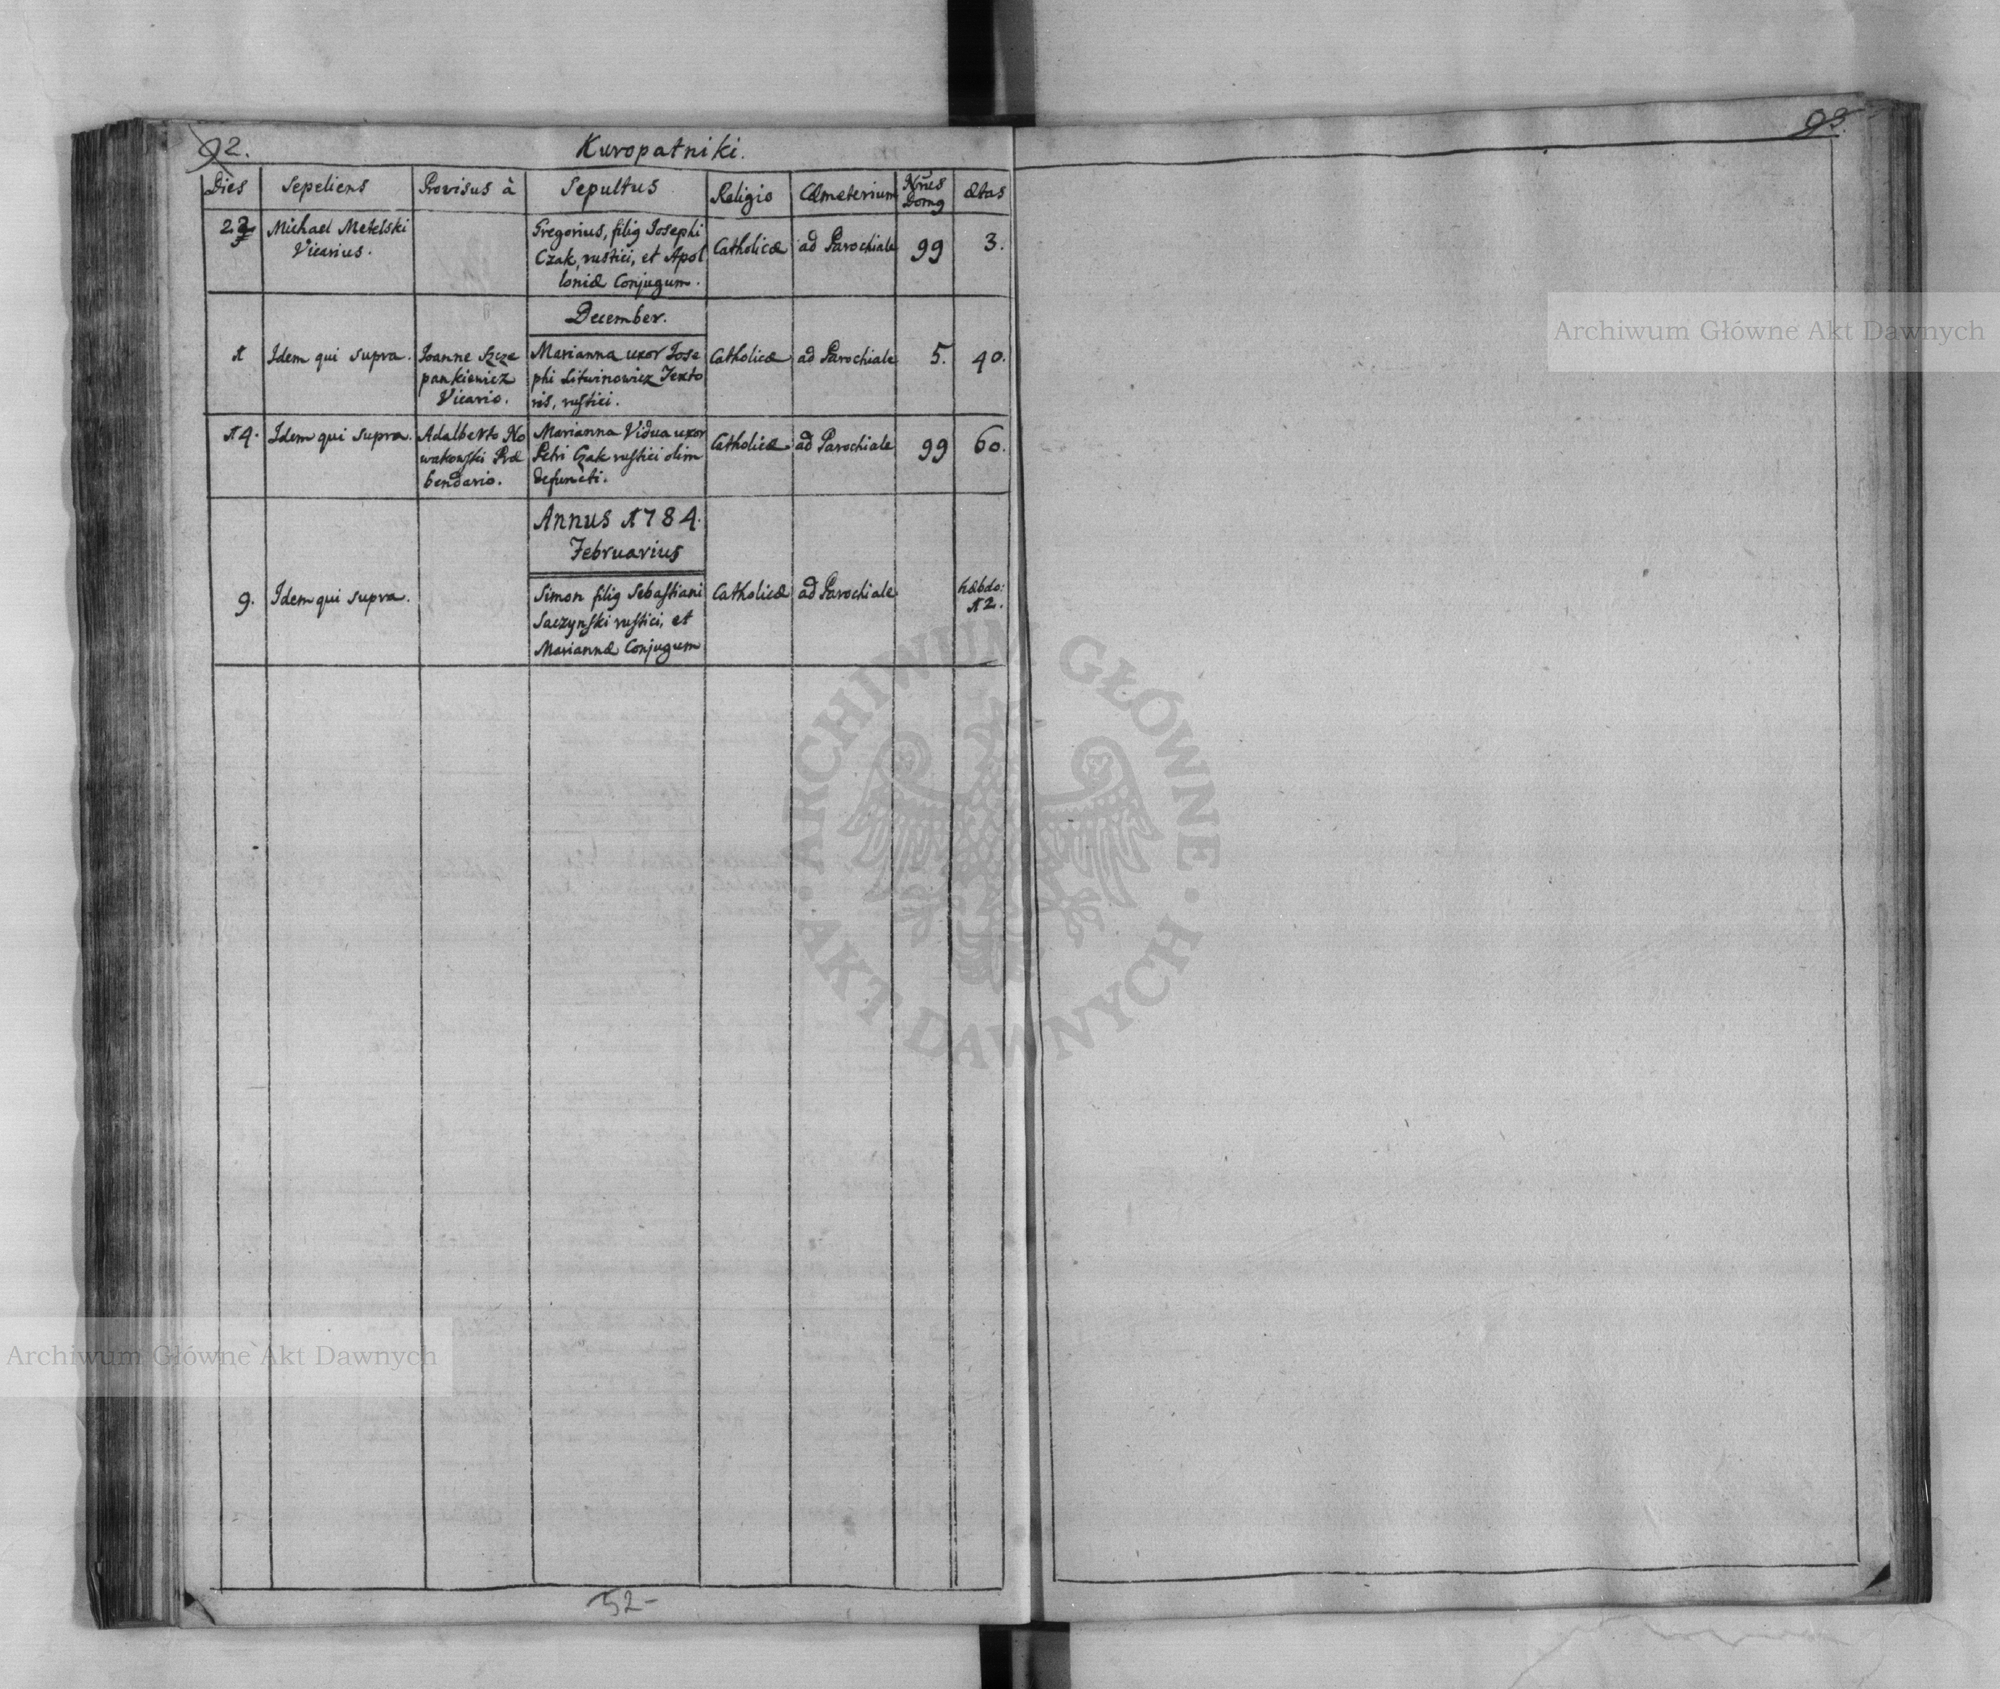 92.
Kuropatniki.
93.
Dies Sepeliens Provisus à Sepultus. Religio Cæmeterium Nrus ætas
Domg
Michael Metelski
Vicarius.
Gregorius, filig Josephi
Czak, rustici, et Apol
loniæ Conjugum.
Catholicæ
ad Parochiale
99
3.
December.
1
Idem qui supra.
Joanne Szcze
pankiewicz
Vicario.
Marianna uxor Jose
phi Litwinowicz Texto
ris, rustici.
Catholicæ
ad Parochiale
5.
40.
14.
Idem qui supra.
Adalberto No
wakowski Præ
bendario.
Marianna Vidua uxor
Petri Czak rustici olim
defuncti.
Catholicæ
ad Parochiale
99
60.
Annus 1784.
Februarius
9.
Idem qui supra.
Simon filig Sebastiani
Saczynski rustici, et
Mariannæ Conjugum
Catholicæ
ad Parochiale
hæbdo:
12.
52-
Archiwum Główne Akt Dawnych
ARCHIWUM GŁÓWNE
AKT DAWNYCH
Archiwum Główne Akt Dawnych